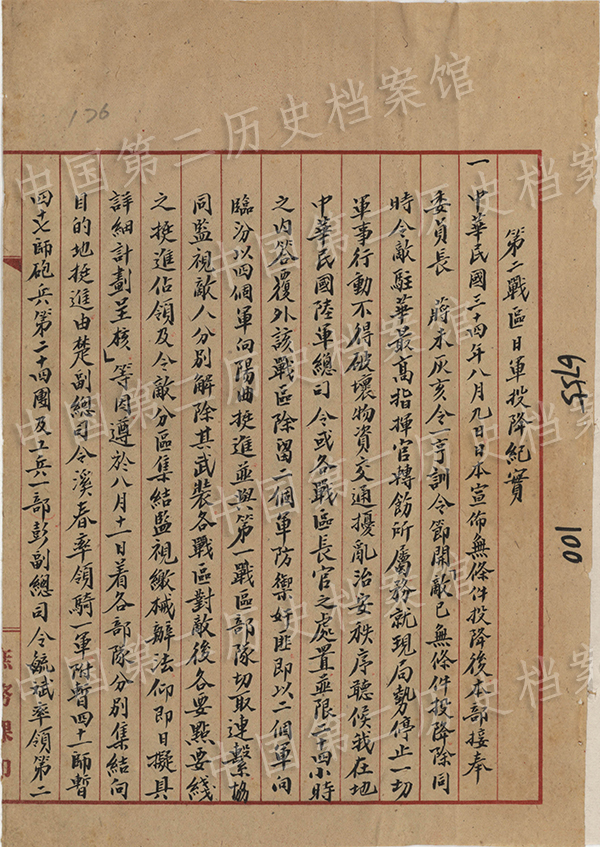 第二戰區日軍投降紀實
一 中華民國三十四年八月九日日本宣佈無條件投降後本部接奉
委員長 蔣未灰亥令一亨訓令節開敵已無條件投降除同
時令敵駐華最高指揮官轉飭所屬務就現局勢停止一切
軍事行動不得破壞物資交通擾亂治安秩序聽候我在地
中華民國陸軍總司令或各戰區長官之處置並限二十四小時
之內答覆外該戰區除留二個軍防禦奸匪即以二個軍向
臨汾以四個軍向陽曲挺進並與第一戰區部隊切取連繫協
同監視敵人分別解除其武裝各戰區對敵後各要點要綫
之挺進佔領及令敵分區集結監視繳械辦法仰即日擬具
詳細計劃呈核」等因遵於八月十一日着各部隊分別集結向
目的地挺進由楚副總司令溪春率領騎一軍附暫四十一師暫
四十七師砲兵第二十四團及工兵一部彭副總司令毓斌率領第二
100
176
中国第二历史档案馆
中国第二历史档案馆
中国第二历史档案馆
中国第二历史档案馆